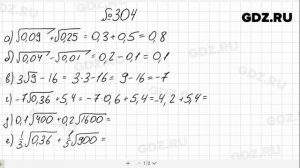 GDZ.RU
№304
а) √0,09 + √0,25 = 0,3 + 0,5 = 0,8
б) √0,04 - √0,01 = 0,2 - 0,1 = 0,1
в) 3√9 - 16 = 3·3 - 16 = 9 - 16 = -7
г) -7√0,36 + 5,4 = -7·0,6 + 5,4 = -4,2 + 5,4 =
д) 0,1√400 + 0,2√1600 =
е) 1/3√0,36 + 1/5√900 =
1/2
GDZ.RU